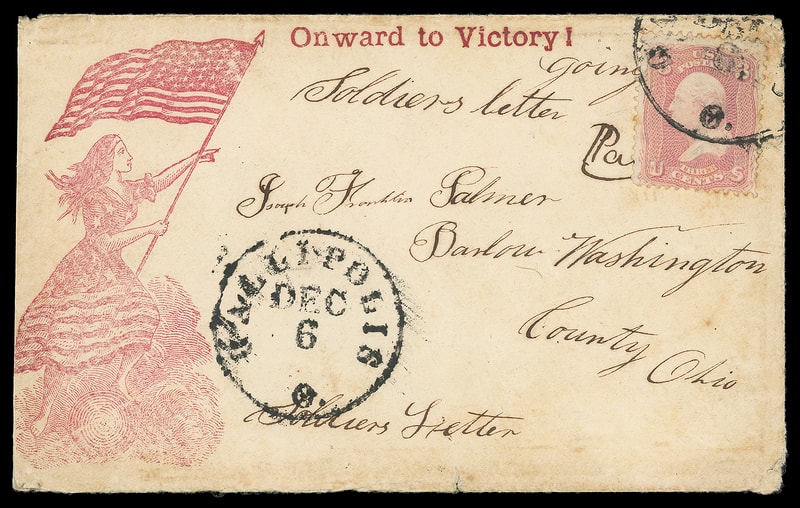 Onward to Victory!
going
Soldiers letter
Pa
U THREE S
CENTS
Joseph Franklin Palmer
Barlow Washington
County Ohio
GALLIPOLIS
DEC
6
O.
Soldiers Letter